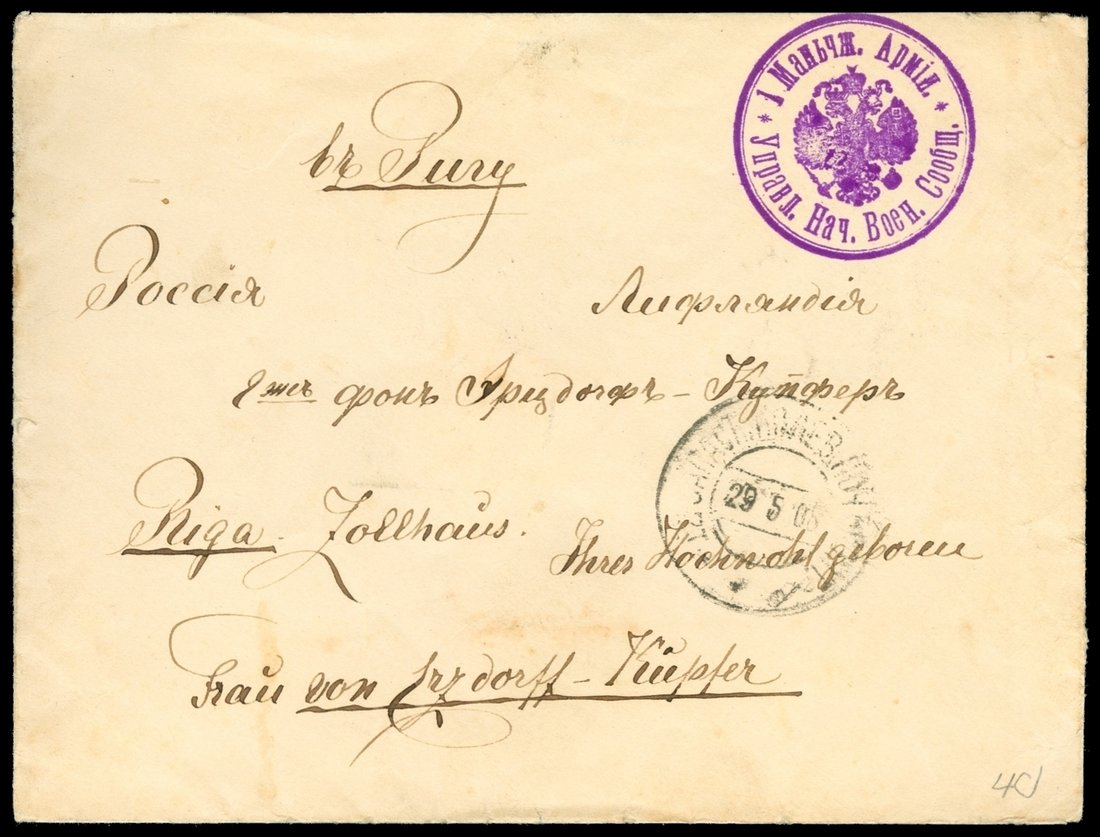 1 Маньчж. Армія.
Управл. Нач. Воен. Сообщ.
въ Ригу
Россія Лифляндія
фонъ Эрцдорфъ-Купферъ
29 5 05
Riga. Zollhaus.
Ihres Hochwohlgeboren
Frau von Erzdorff-Küpfer
40